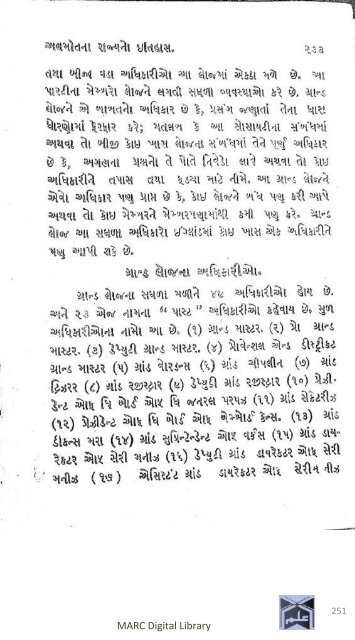 અલમોતના રાજ્યનો ઇતિહાસ. ૨૩૩
તથા બીજા વડા અધિકારીઓ આ લોજમાં એકઠા મળે છે. આ
પારટીના મેમ્બરો લોજને લગતી સઘળી વ્યવસ્થાઓ કરે છે, ગ્રાન્ડ
લોજને એ બાબતનો અધિકાર છે કે, પ્રસંગ જણાતાં તેના ધારા
ધોરણોમાં ફેરફાર કરે; મતલબ કે આ સોસાયટીના સંબંધમાં
અથવા તો બીજી કોઇ ખાસ લોજના સંબંધમાં તેને પણુ અધિકાર
છે કે, અગત્યના પ્રશ્નનો તે પોતે નિવેડો લાવે અથવા તો કોઇ
અધિકારીને તપાસ તથા ફડચા માટે નીમે. આ ગ્રાન્ડ લોજને
એવો અધિકાર પણ પ્રાપ્ત છે કે, કોઇ લોજને બંધ પણ કરી આપે
અથવા તો કોઇ મેમ્બરને મેમ્બરપણામાંથી કમી પણ કરે. ગ્રાન્ડ
લોજ આ સઘળા અધિકારો ઈંગ્લાંડમાં કોઇ ખાસ એક અધિકારીને
પણ આપી શકે છે.
ગ્રાન્ડ લોજના અધિકારીઓ.
ગ્રાન્ડ લોજના સઘળા મળીને ૪૯ અધિકારીઓ હોય છે.
અને ૨૩ એજ નામના “ પાસ્ટ ” અધિકારીઓ કહેવાય છે. મુળ
અધિકારીઓના નામો આ છે. (૧) ગ્રાન્ડ માસ્ટર. (૨) પ્રો ગ્રાન્ડ
માસ્ટર. (૩) ડેપ્યુટી ગ્રાન્ડ માસ્ટર. (૪) પ્રોવેન્શલ એન્ડ ડીસ્ટ્રીકટ
ગ્રાન્ડ માસ્ટર (૫) ગ્રાંડ વોરડન્સ (૬) ગ્રાંડ ચીપલીન (૭) ગ્રાંડ
ટ્રિઝરર (૮) ગ્રાંડ રજીસ્ટ્રાર (૯) ડેપ્યુટી ગ્રાંડ રજીસ્ટ્રાર (૧૦) પ્રેઝી-
ડેન્ટ ઓફ ધિ બોર્ડ ઓફ ધિ જનરલ પરપઝ (૧૧) ગ્રાંડ સેક્રેટરીઝ
(૧૨) પ્રેઝીડેન્ટ ઓફ ધિ બોર્ડ ઓફ બેન્વોર્ડ ફેન્સ. (૧૩) ગ્રાંડ
ડીકન્સ મરા (૧૪) ગ્રાંડ સુપ્રિન્ટેન્ડેન્ટ ઓફ વર્કસ (૧૫) ગ્રાંડ ડાય-
રેકટર ઓફ સેરી મનીઝ (૧૬) ડેપ્યુટી ગ્રાંડ ડાયરેકટર ઓફ સેરી
મનીઝ (૧૭) એસિસ્ટંટ ગ્રાંડ ડાયરેકટર ઓફ સેરીમનીઝ
251
MARC Digital Library